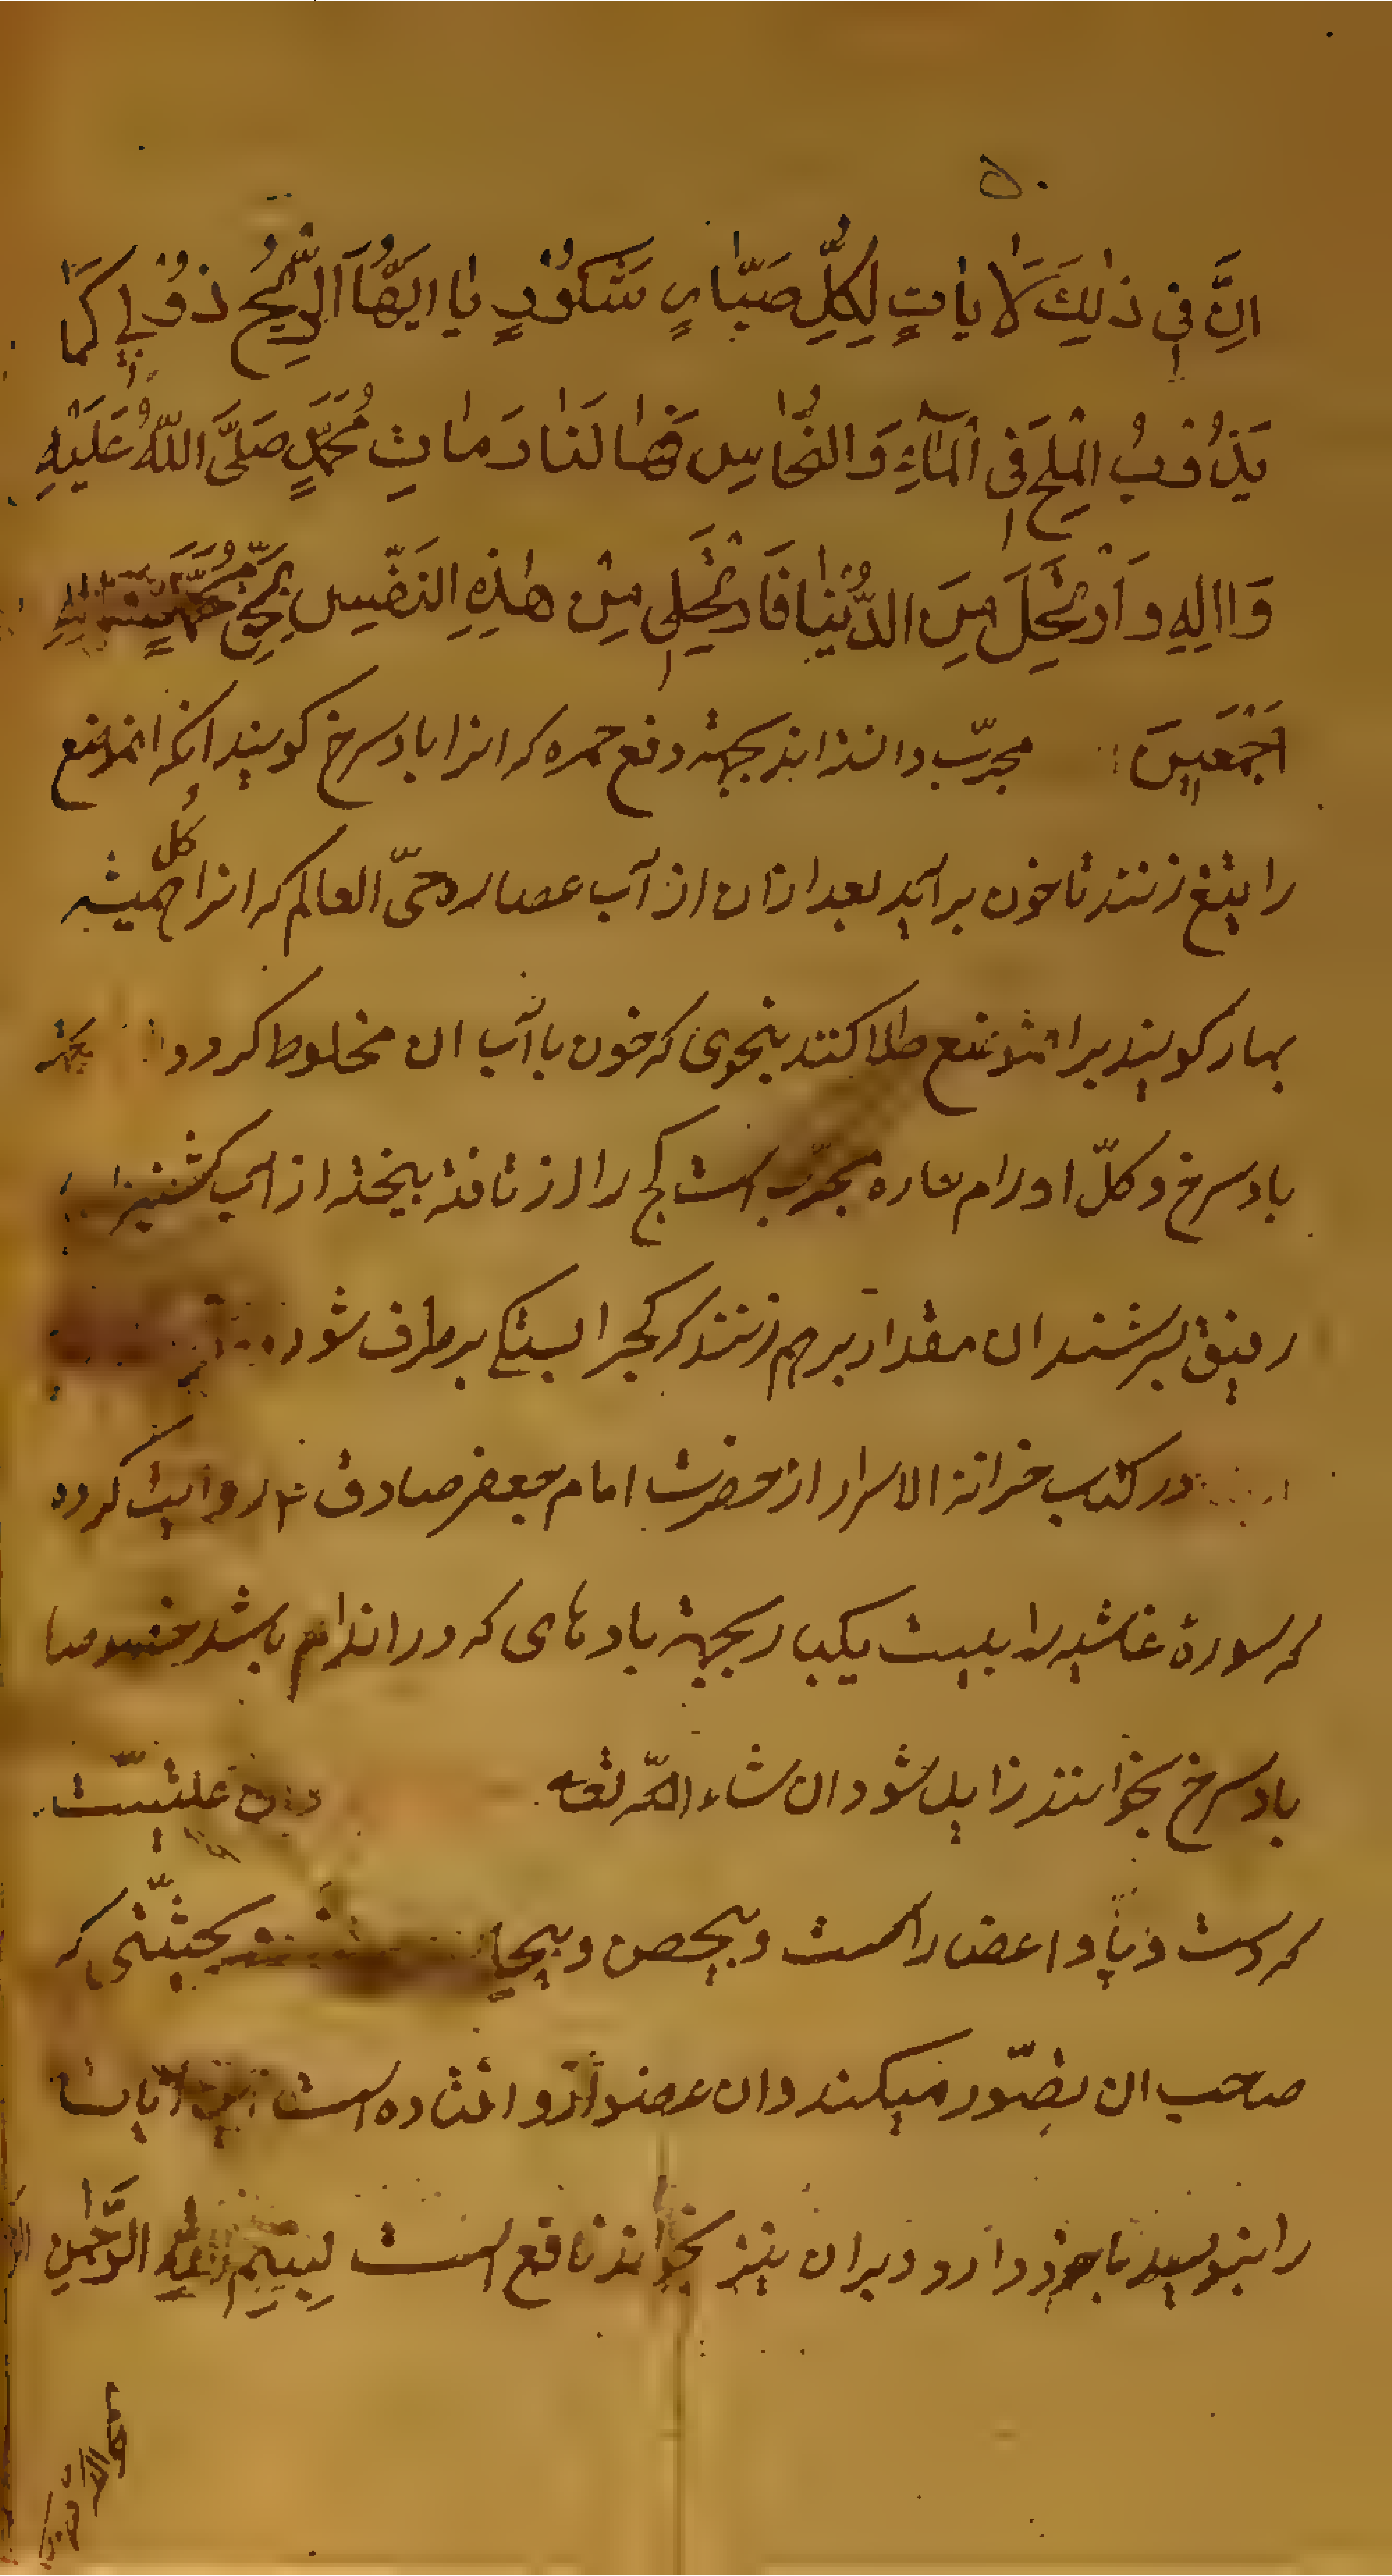 ۵۰
اِنَّ فی ذٰلِكَ لَاٰیاتٍ لِكُلِّ صَبّٰارٍ شَكُوْرٍ یٰا اَیُّهَا الرّیٖحُ ذُوْبی كَمٰا
یَذُوْبُ الْمِلْحُ فی الْمٰآءِ وَالنُّحٰاسِ فی النّارِ مٰاتِ مُحَمَّدٍ صَلَّی اللّٰهُ عَلَیْهِ
وَاالِهِ وَاَرْتَحَلَ مِنَ الدُّنْیٰا فَارْتَحِلی مِنْ هٰذِهِ النَفْسِ بِحَقِّ مُحَمَّدٍ
اَجْمَعیٖنَ مجرّب دانسته‌اند بجهة دفع حمره كه انرا باد سرخ كویند انكه انموضع
را بتیغ زنند تا خون براید بعد ازان از آب عصاره حیّ العالم كه انرا كل همیشه
بهار كویند بر انموضع طلا كنند بنحوی كه خون با آب ان مخلوط كردد بجهة
باد سرخ و كلّ اورام حاره مجرّب است كج را از تافته بیخته از اب كشنیز
رقیق بسرشند ان مقدار برهم زنند كه كجرا بستكی برطرف شود
در كتاب خزانة الاسرار از حضرت امام جعفر صادق ع روایت كرده
كه سورهٔ غاشیه را بیست یكبار بجهة بادهای كه در اندام باشد خصوصا
باد سرخ بخوانند زایل شود ان شاء اللّه تعه علتیست
كه دست و پا و اعضا راست و بحیثیتی كه
صاحب ان تصّور میكند و ان عضو ازو افتاده است این آیات
را بنویسد با خود دارد و بران نیز بخواند نافع است بِسْمِ اللّٰهِ الرَّحْمٰنِ